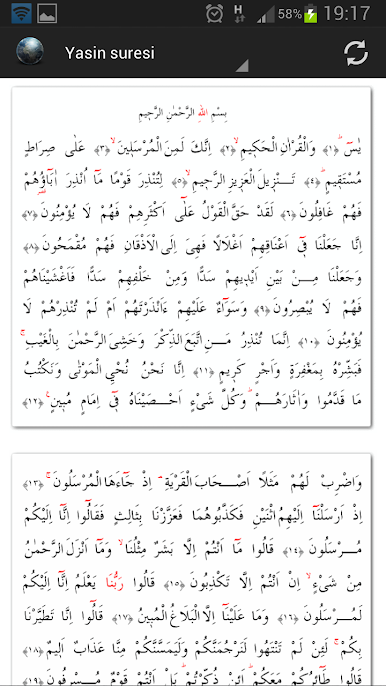 H 58% 19:17
Yasin suresi
بِسْمِ اللهِ الرَّحْمٰنِ الرَّحِيمِ
يٰسٓ ﴿١﴾ وَالْقُرْاٰنِ الْحَكِيمِ ﴿٢﴾ اِنَّكَ لَمِنَ الْمُرْسَلِينَ ﴿٣﴾ عَلٰى صِرَاطٍ
مُسْتَقِيمٍ ﴿٤﴾ تَنْزِيلَ الْعَزِيزِ الرَّحِيمِ ﴿٥﴾ لِتُنْذِرَ قَوْمًا مَٓا اُنْذِرَ اٰبَٓاؤُهُمْ
فَهُمْ غَافِلُونَ ﴿٦﴾ لَقَدْ حَقَّ الْقَوْلُ عَلٰٓى اَكْثَرِهِمْ فَهُمْ لَا يُؤْمِنُونَ ﴿٧﴾
اِنَّا جَعَلْنَا فِٓى اَعْنَاقِهِمْ اَغْلَالًا فَهِىَ اِلَى الْاَذْقَانِ فَهُمْ مُقْمَحُونَ ﴿٨﴾
وَجَعَلْنَا مِنْ بَيْنِ اَيْدِيهِمْ سَدًّا وَمِنْ خَلْفِهِمْ سَدًّا فَاَغْشَيْنَاهُمْ
فَهُمْ لَا يُبْصِرُونَ ﴿٩﴾ وَسَوَٓاءٌ عَلَيْهِمْ ءَاَنْذَرْتَهُمْ اَمْ لَمْ تُنْذِرْهُمْ لَا
يُؤْمِنُونَ ﴿١٠﴾ اِنَّمَا تُنْذِرُ مَنِ اتَّبَعَ الذِّكْرَ وَخَشِىَ الرَّحْمٰنَ بِالْغَيْبِ
فَبَشِّرْهُ بِمَغْفِرَةٍ وَاَجْرٍ كَرِيمٍ ﴿١١﴾ اِنَّا نَحْنُ نُحْيِى الْمَوْتٰى وَنَكْتُبُ
مَا قَدَّمُوا وَاٰثَارَهُمْ وَكُلَّ شَىْءٍ اَحْصَيْنَاهُ فِٓى اِمَامٍ مُبِينٍ ﴿١٢﴾
وَاضْرِبْ لَهُمْ مَثَلًا اَصْحَابَ الْقَرْيَةِ اِذْ جَٓاءَهَا الْمُرْسَلُونَ ﴿١٣﴾
اِذْ اَرْسَلْنَٓا اِلَيْهِمُ اثْنَيْنِ فَكَذَّبُوهُمَا فَعَزَّزْنَا بِثَالِثٍ فَقَالُٓوا اِنَّٓا اِلَيْكُمْ
مُرْسَلُونَ ﴿١٤﴾ قَالُوا مَٓا اَنْتُمْ اِلَّا بَشَرٌ مِثْلُنَا وَمَٓا اَنْزَلَ الرَّحْمٰنُ
مِنْ شَىْءٍ اِنْ اَنْتُمْ اِلَّا تَكْذِبُونَ ﴿١٥﴾ قَالُوا رَبُّنَا يَعْلَمُ اِنَّٓا اِلَيْكُمْ
لَمُرْسَلُونَ ﴿١٦﴾ وَمَا عَلَيْنَٓا اِلَّا الْبَلَاغُ الْمُبِينُ ﴿١٧﴾ قَالُٓوا اِنَّا تَطَيَّرْنَا
بِكُمْ لَئِنْ لَمْ تَنْتَهُوا لَنَرْجُمَنَّكُمْ وَلَيَمَسَّنَّكُمْ مِنَّا عَذَابٌ اَلِيمٌ ﴿١٨﴾
قَالُوا طَٓائِرُكُمْ مَعَكُمْ اَئِنْ ذُكِّرْتُمْ بَلْ اَنْتُمْ قَوْمٌ مُسْرِفُونَ ﴿١٩﴾